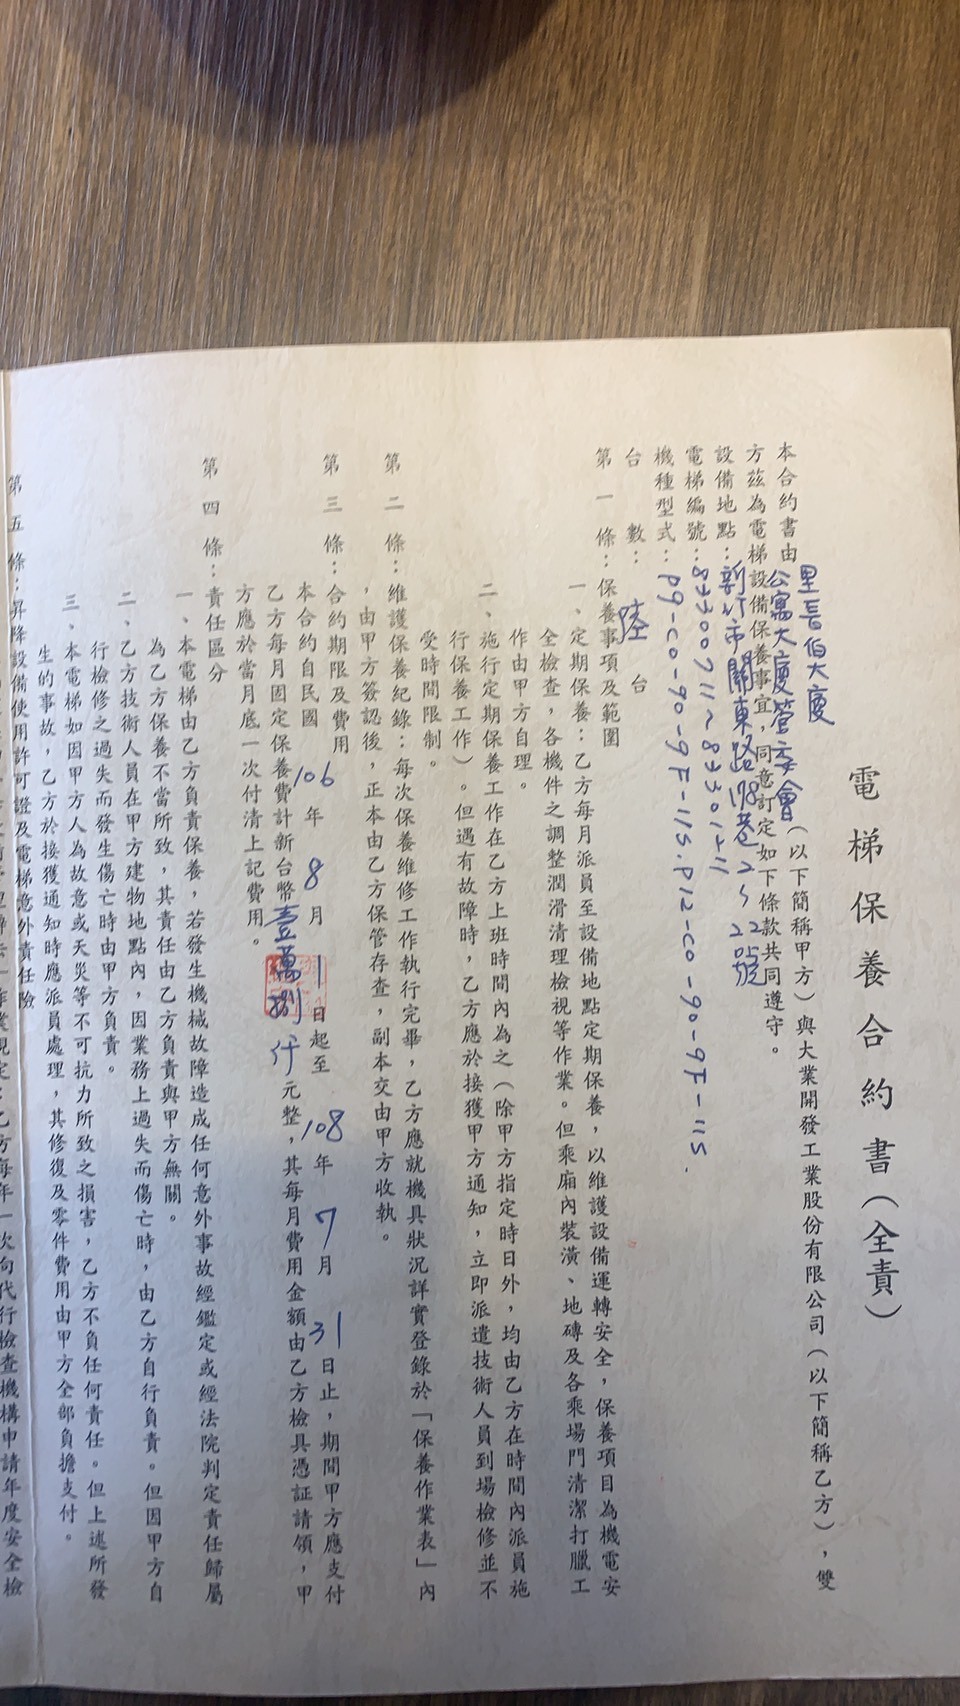 電梯保養合約書(全責)
本合約書由里長伯大廈公寓大廈管委會(以下簡稱甲方)與大業開發工業股份有限公司(以下簡稱乙方),雙
方茲為電梯設備保養事宜,同意訂定如下條款共同遵守。
設備地點:新竹市關東路198巷2~22號
電梯編號:
機種型式:P9-CO-90-9F-11S.P12-CO-90-9F-11S.
台 數:陸 台
第 一 條:保養事項及範圍
一、定期保養:乙方每月派員至設備地點定期保養,以維護設備運轉安全,保養項目為機電安
全檢查,各機件之調整潤滑清理檢視等作業。但乘廂內裝潢、地磚及各乘場門清潔打臘工
作由甲方自理。
二、施行定期保養工作在乙方上班時間內為之(除甲方指定時日外,均由乙方在時間內派員施
行保養工作)。但遇有故障時,乙方應於接獲甲方通知,立即派遣技術人員到場檢修並不
受時間限制。
第 二 條:維護保養紀錄:每次保養維修工作執行完畢,乙方應就機具狀況詳實登錄於「保養作業表」內
,由甲方簽認後,正本由乙方保管存查,副本交由甲方收執。
第 三 條:合約期限及費用
本合約自民國 106 年 8 月 1 日起至 108 年 7 月 31 日止,期間甲方應支付
乙方每月固定保養費計新台幣壹萬捌仟元整,其每月費用金額由乙方檢具憑証請領,甲
方應於當月底一次付清上記費用。
第 四 條:責任區分
一、本電梯由乙方負責保養,若發生機械故障造成任何意外事故經鑑定或經法院判定責任歸屬
為乙方保養不當所致,其責任由乙方負責與甲方無關。
二、乙方技術人員在甲方建物地點內,因業務上過失而傷亡時,由乙方自行負責。但因甲方自
行檢修之過失而發生傷亡時由甲方負責。
三、本電梯如因甲方人為故意或天災等不可抗力所致之損害,乙方不負任何責任。但上述所發
生的事故,乙方於接獲通知時應派員處理,其修復及零件費用由甲方全部負擔支付。
第 五 條:昇降設備使用許可證及電梯意外責任險
乙方每年一次向代行檢查機構申請年度安全檢